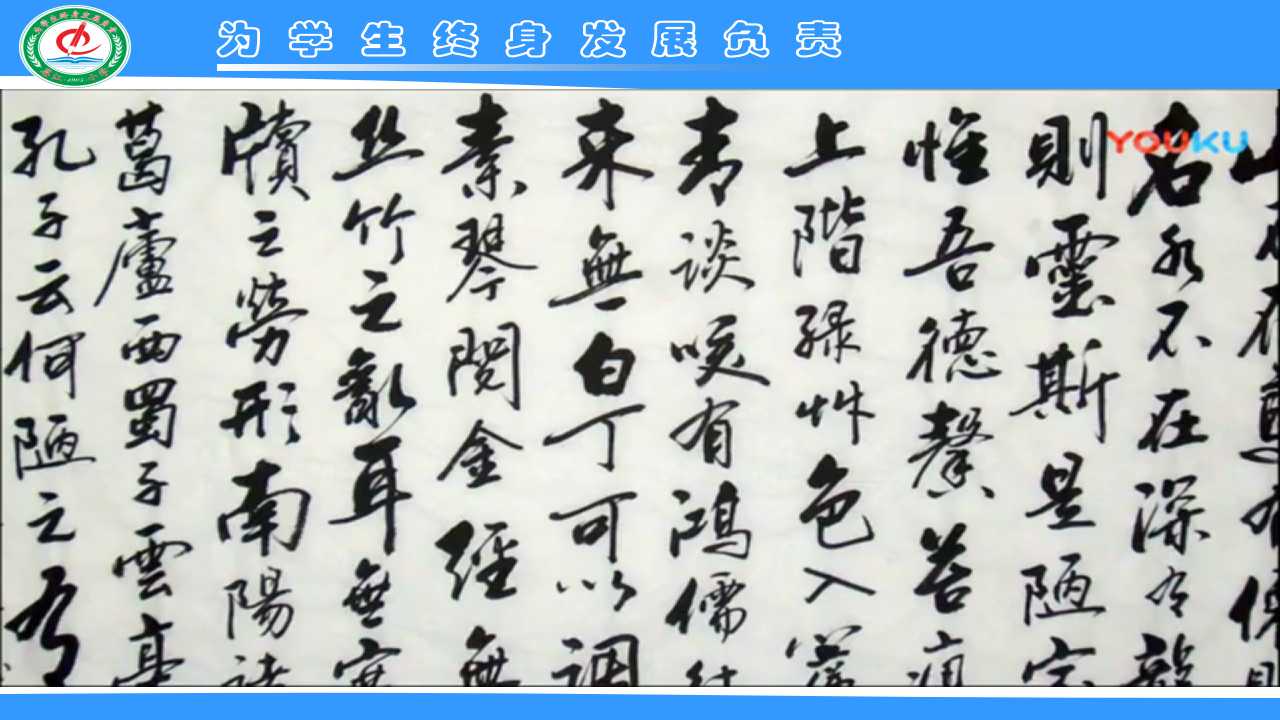 为学生终身发展负责
YOUKU
山不在高有僊則
名水不在深有龍
則靈斯是陋室
惟吾德馨苔痕
上階緑艸色入簾
青談咲有鴻儒往
来無白丁可以調
素琴閲金經無
丝竹之亂耳無案
牘之勞形南陽諸
葛廬西蜀子雲亭
孔子云何陋之有